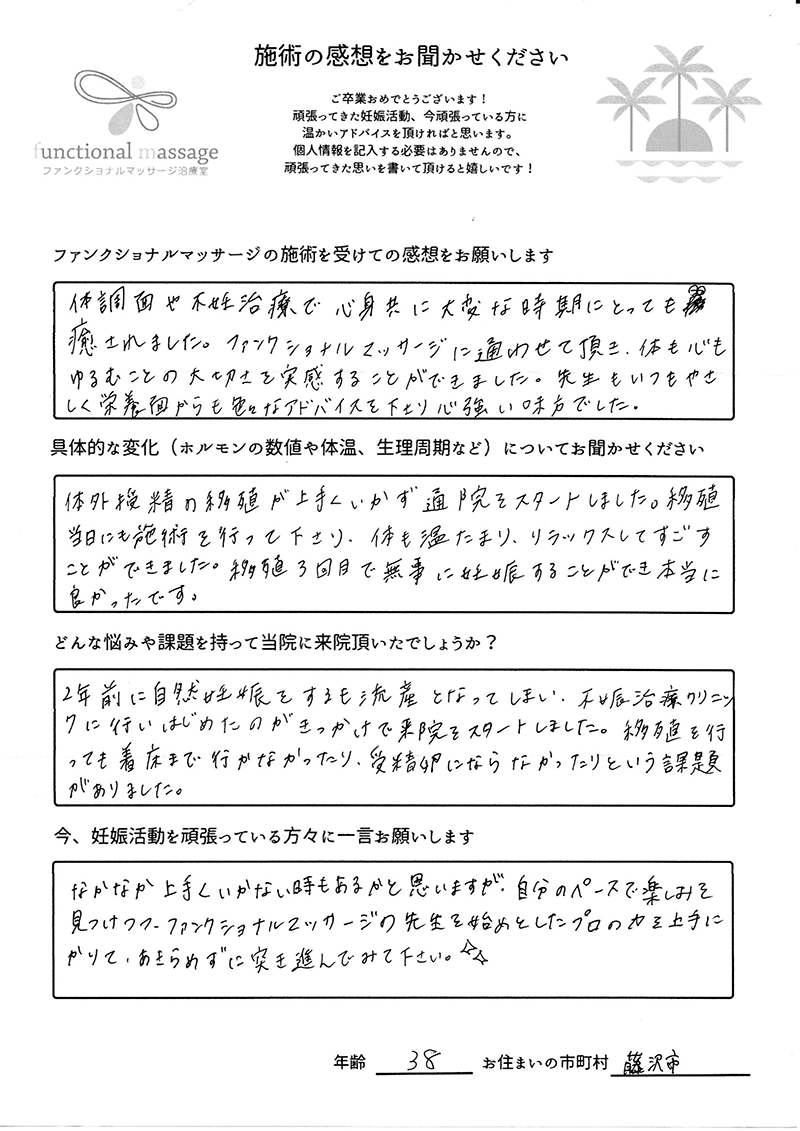 施術の感想をお聞かせください
ご卒業おめでとうございます！
頑張ってきた妊娠活動、今頑張っている方に
温かいアドバイスを頂ければと思います。
個人情報を記入する必要はありませんので、
頑張ってきた思いを書いて頂けると嬉しいです！
functional massage
ファンクショナルマッサージ治療室
ファンクショナルマッサージの施術を受けての感想をお願いします
体調面や不妊治療で心身共に大変な時期にとっても
癒されました。ファンクショナルマッサージに通わせて頂き、体も心も
ゆるむことの大切さを実感することができました。先生もいつもやさ
しく栄養面からも色々なアドバイスを下さり心強い味方でした。
具体的な変化（ホルモンの数値や体温、生理周期など）についてお聞かせください
体外授精の移殖が上手くいかず通院をスタートしました。移殖
当日にも施術を行って下さり、体も温たまり、リラックスしてすごす
ことができました。移殖3回目で無事に妊娠することができ本当に
良かったです。
どんな悩みや課題を持って当院に来院頂いたでしょうか？
2年前に自然妊娠をするも流産となってしまい、不妊治療クリニッ
クに行いはじめたのがきっかけで来院をスタートしました。移殖を行
っても着床まで行かなかったり、受精卵にならなかったりという課題
がありました。
今、妊娠活動を頑張っている方々に一言お願いします
なかなか上手くいかない時もあるかと思いますが、自分のペースで楽しみを
見つけつつ、ファンクショナルマッサージの先生を始めとしたプロの力を上手に
かりて、あきらめずに突き進んでみて下さい。☆☆
年齢 38 お住まいの市町村 藤沢市